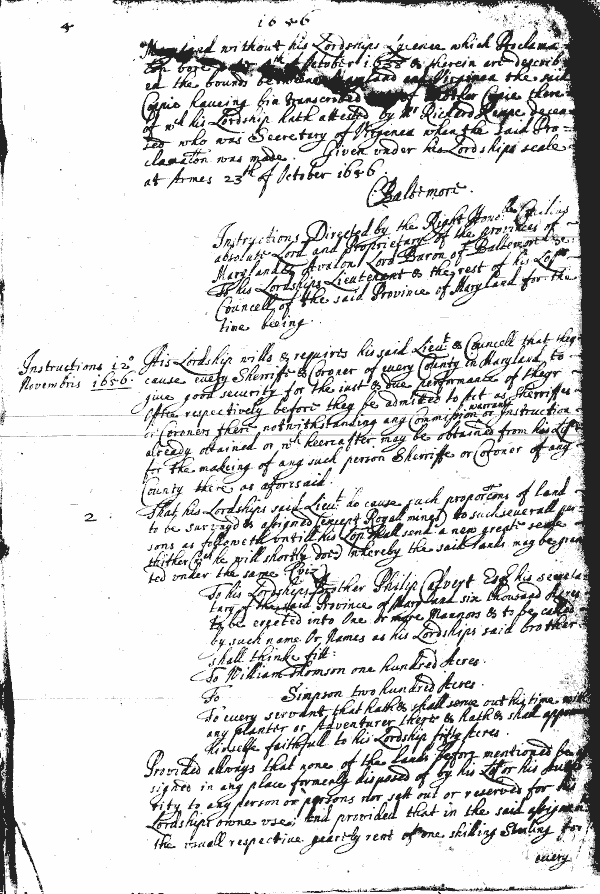 4
1656
Maryland without his Lordships Lycence which Proclama=
tion bore October & therein are describ
ed the bounds Maryland and Virginea the said
Copie haueing bin transcribed there
of wch his Lordship hath attested by Mr Richard Kempe decea=
sed who was Secretary of Virginea when the said Pro=
clamation was made. Given under his Lordships seale
at Armes 23th of October 1656
CBaltemore.
Instructions Directed by the Right Honoble Cecilius
absolute Lord and Proprietary of the provinces of
Maryland & Avalon Lord Baron of Baltemore &c
To his Lordships Lieutenent & the rest of his Lopps
Councell of the said Province of Maryland for the
time being.
Instructions 12o
Novembris 1656.
His Lordship wills & requires his said Lieut & Councell that they
cause every Sherriffe & Coroner of every County in Maryland to
give good security for the iust & due performance of theyr
Office respectively before they be admitted to act as Sherriffes
or Coroners there notwithstanding any Commission warrant or Instruction
already obtained or wch heereafter may be obtained from his Lopp
for the makeing of any such person Sherriffe or Coroner of any
County there as aforesaid.
2
That his Lordships said Lieut do cause such proportons of land
to be surveyed & assigned (except Royall mines) to such severall per
sons as followeth untill his Lopp shall send a new greate seale
thither (wch he will shortly doe) whereby the said lands may be gran
ted under the same (viz)
To his Lordships brother Philip Calvert Esqr his Secreta
tary of the said Province of Maryland six thousand Acres
to be erected into One or more Mannors & to be called
by such name Or Names as his Lordships said brother
shall thinke fitt.
To William Thomson one hundred Acres.
To Simpson two hundred Acres
To every servant that hath & shall serve out his time with
any planter or Adventurer there & hath & shall appear
himselfe faithfull to his Lordship fifty Acres.
Provided allways that none of the lands before mentioned be as
signed in any place formerly disposed of by his Lopp or his autho
rity to any person or persons nor sett out or reserved for his
Lordships owne use; And provided that in the said assignem
the usuall respective yearely rent of one shilling Sterling for
every